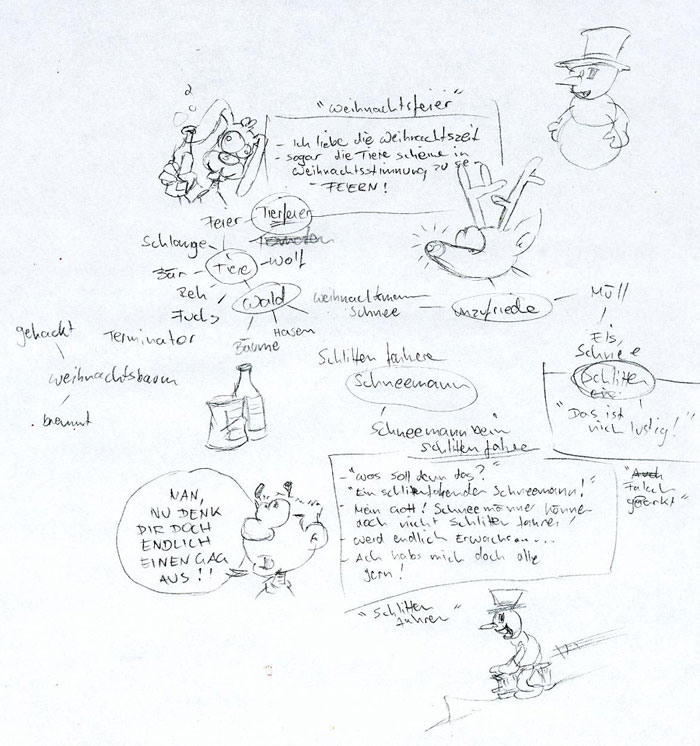 "Weihnachtsfeier"
- Ich liebe die Weihnachtszeit
- sogar die Tiere scheine in
Weihnachtsstimmung zu se
- FEIERN!
Feier
Tierfeier
Schlange
Bär
Tiere
Wolf
Reh
Fuchs
Wald
Hasen
Bäume
Schnee
unzufriede
Müll
Eis,
Schnee
Schlitten
"Das ist
nich lustig!"
gehackt
Terminator
Weihnachtsbaum
brennt
Schlitten fahere
Schneemann
Schneemann beim
schlitten fahre
- "Was soll denn das?"
"Ein schlittenfahrender Schneemann!"
- Mein Gott! Schneemänner können
doch nicht Schlitten fahren!
- Werd endlich Erwachsn....
- Ach habs mich doch alle
gern!
"Auch
Falsch
geparkt"
MAN,
NU DENK
DIR DOCH
ENDLICH
EINEN GAG
AUS!!
"Schlitten
fahren"